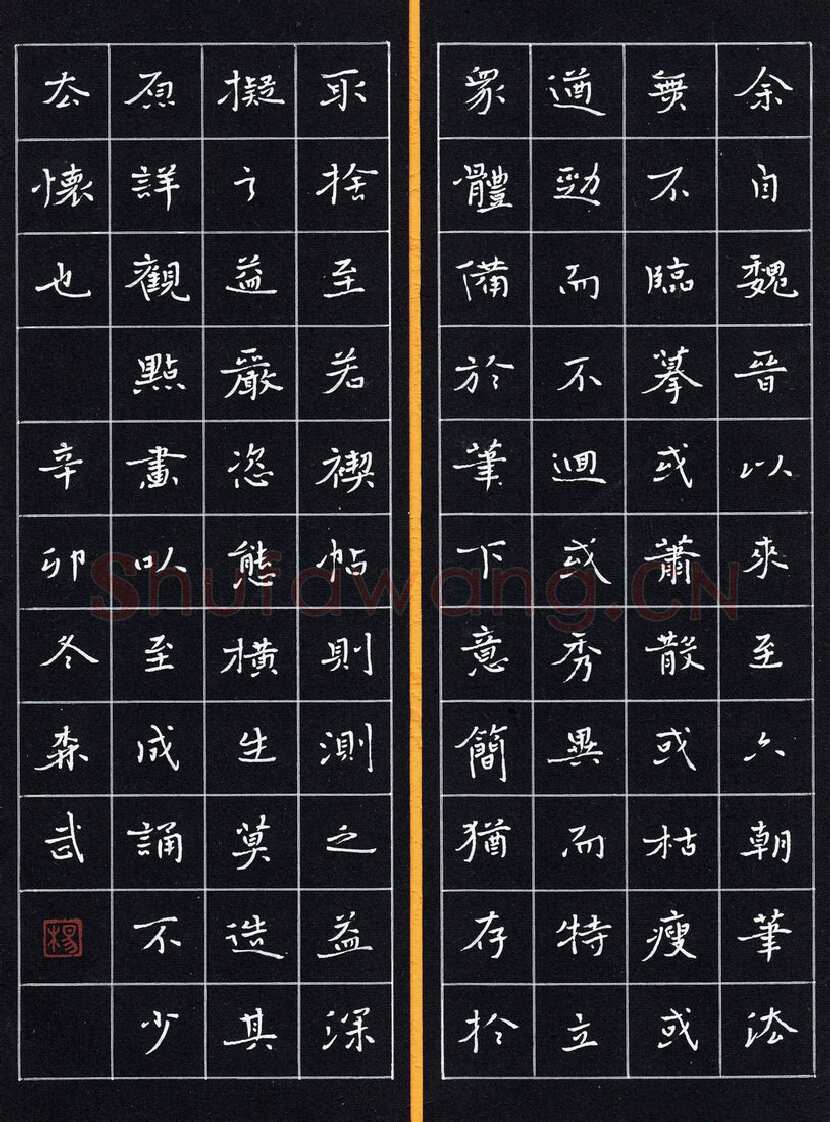 余自魏晉以來至六朝筆法
無不臨摹或蕭散或枯瘦或
遒勁而不迴或秀異而特立
眾體備於筆下意簡猶存於
取捨至若禊帖則測之益深
擬之益嚴恣態橫生莫造其
原詳觀點畫以至成誦不少
去懷也 辛卯冬森武
楊
Shufawang.CN